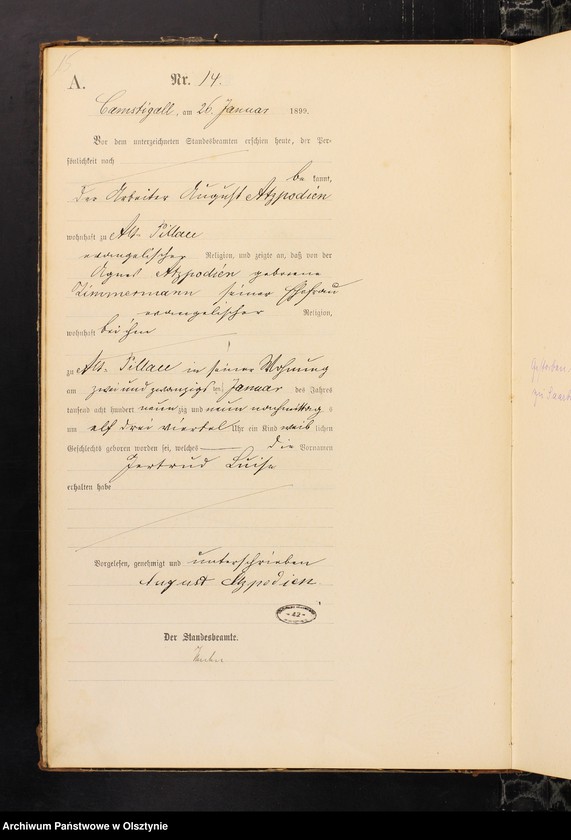 A.
Nr. 14.
Camstigall, am 26. Januar 1899.
Vor dem unterzeichneten Standesbeamten erschien heute, der Per-
sönlichkeit nach
be kannt,
der Arbeiter August Atzpodien
wohnhaft zu Alt-Pillau
evangelischer Religion, und zeigte an, daß von der
Agnes Atzpodien geborene
Zimmermann seiner Ehefrau
evangelischer Religion,
wohnhaft bei ihm
zu Alt-Pillau in seiner Wohnung
am zwei und zwanzigsten Januar des Jahres
tausend acht hundert neunzig und neun nachmittags
um elf drei viertel Uhr ein Kind weiblichen
Geschlechts geboren worden sei, welches die Vornamen
Gertrud Luise
erhalten habe
Vorgelesen, genehmigt und unterschrieben
August Atzpodien.
- 42 -
Der Standesbeamte.
Archiwum Państwowe w Olsztynie